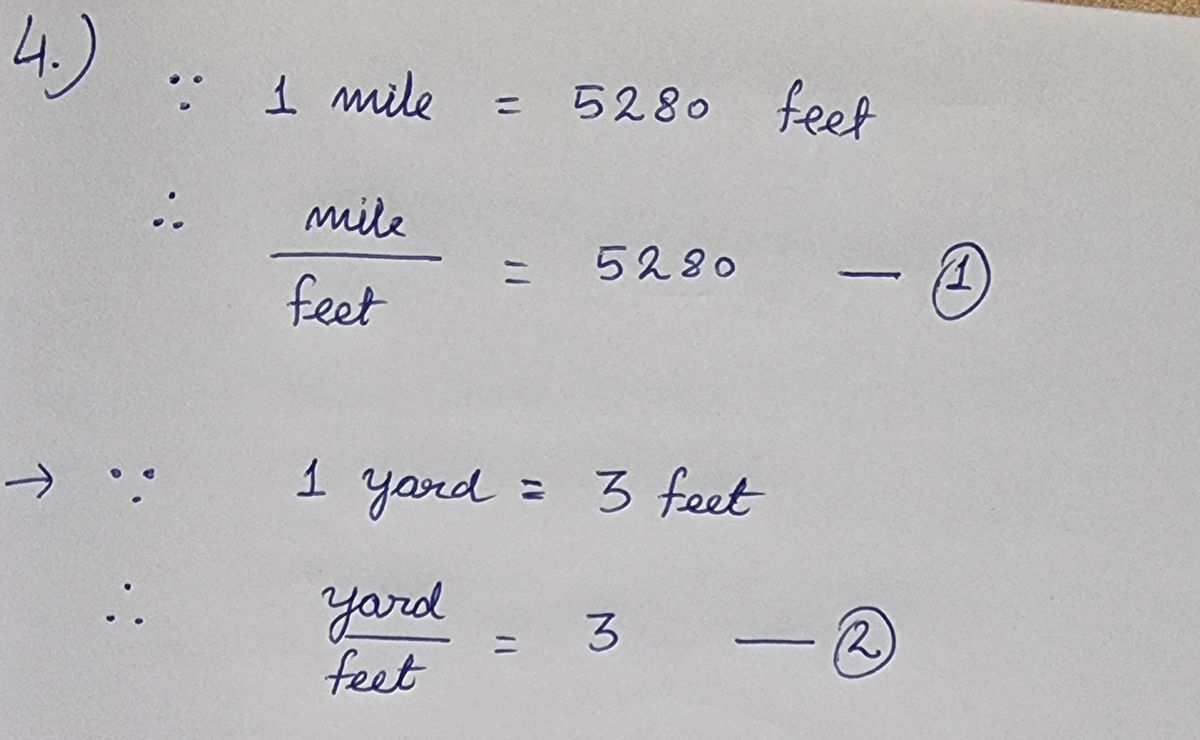 4.) ∵ 1 mile = 5280 feet
∴ mile
feet = 5280 — ①
→ ∵ 1 yard = 3 feet
∴ yard
feet = 3 — ②